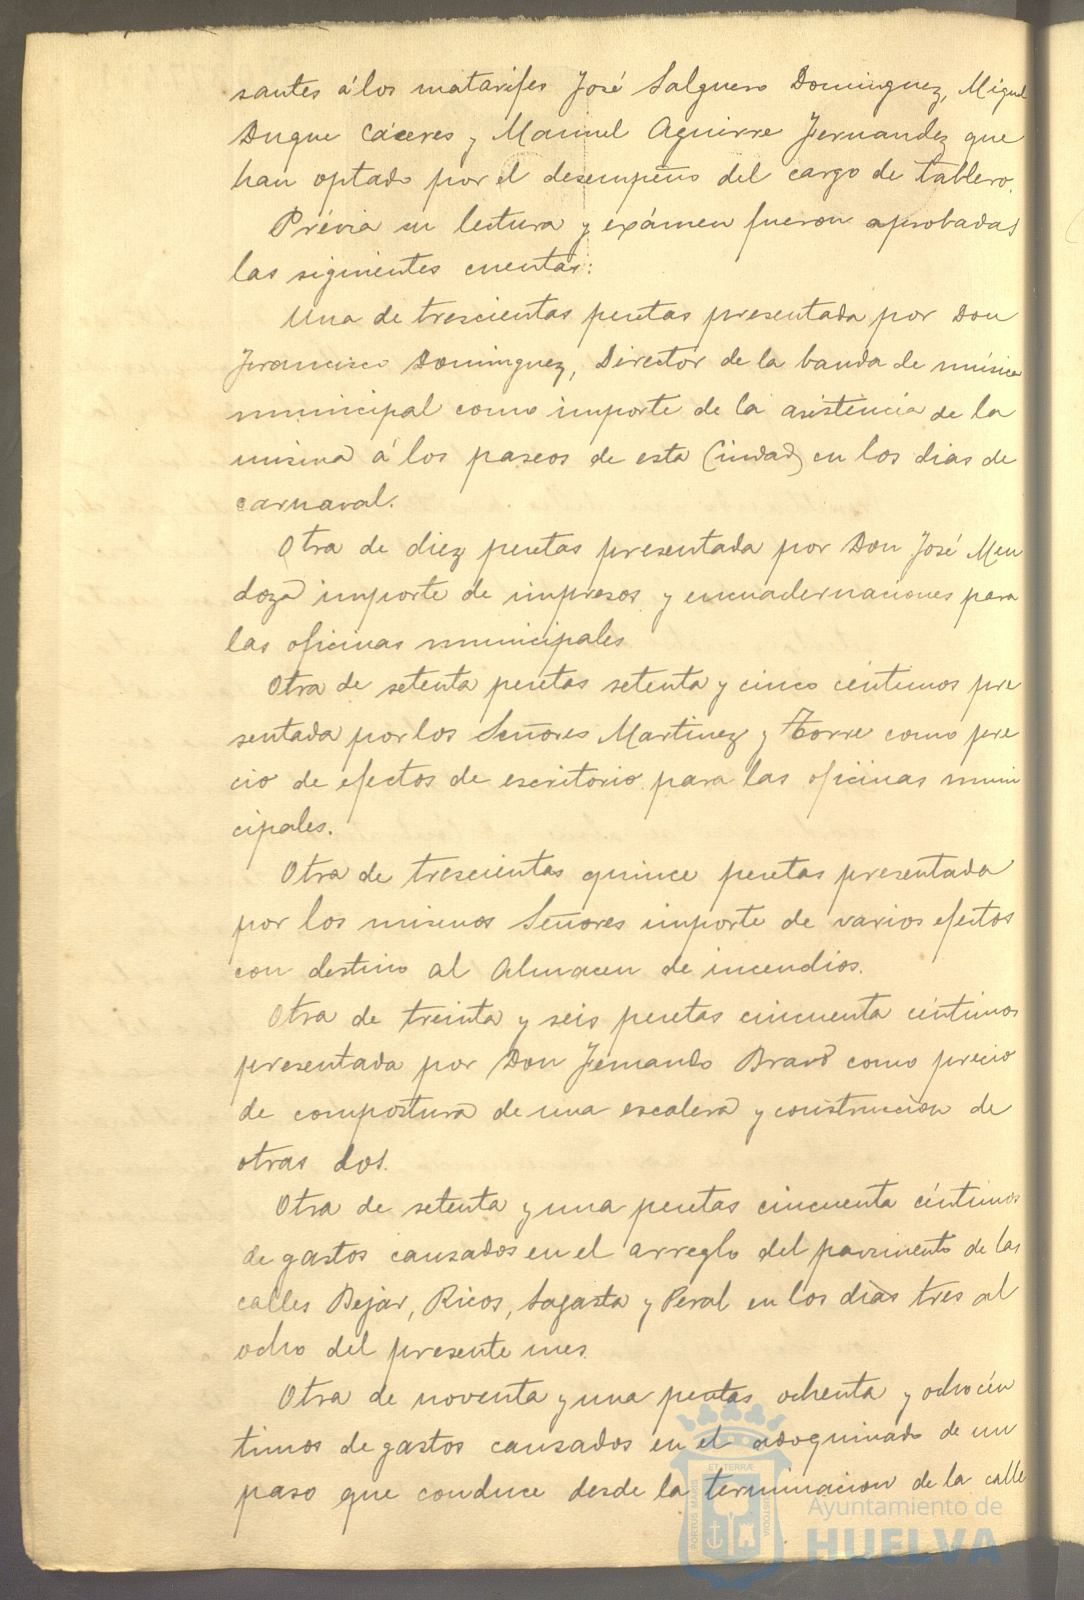 santes á los matarifes José Salguero Dominguez, Miguel
Duque Cáceres y Manuel Aguirre Fernandez que
han optado por el desempeño del cargo de tablero.
Prévia su lectura y exámen fueron aprobadas
las siguientes cuentas:
Una de trescientas pesetas presentada por Don
Francisco Dominguez, Director de la banda de música
municipal como importe de la asistencia de la
misma á los paseos de esta Ciudad en los dias de
carnaval.
Otra de diez pesetas presentada por Don José Men
doza importe de impresos y encuadernaciones para
las oficinas municipales
Otra de setenta pesetas setenta y cinco céntimos pre
sentada por los Señores Martinez y Torre como pre
cio de efectos de escritorio para las oficinas muni
cipales.
Otra de trescientas quince pesetas presentada
por los mismos Señores importe de varios efectos
con destino al Almacen de incendios.
Otra de treinta y seis pesetas cincuenta céntimos
presentada por Don Fernando Bravo como precio
de compostura de una escalera y construcion de
otras dos.
Otra de setenta y una pesetas cincuenta céntimos
de gastos causados en el arreglo del pavimento de las
calles Bejar, Ricos, Sagasta y Peral en los dias tres al
ocho del presente mes
Otra de noventa y una pesetas ochenta y ocho cén
timos de gastos causados en el adoquinado de un
paso que conduce desde la terminacion de la calle
PORTUS MARIS
ET TERRÆ
CUSTODIA
Ayuntamiento de
HUELVA